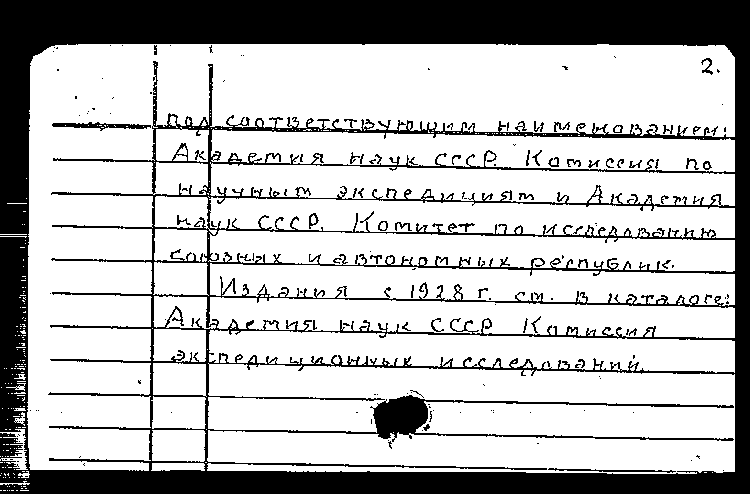 2.
под соответствующим наименованием:
Академия наук СССР. Комиссия по
научным экспедициям и Академия
наук СССР. Комитет по исследованию
союзных и автономных республик.
Издания с 1928 г. см. в каталоге:
Академия наук СССР. Комиссия
экспедиционных исследований.